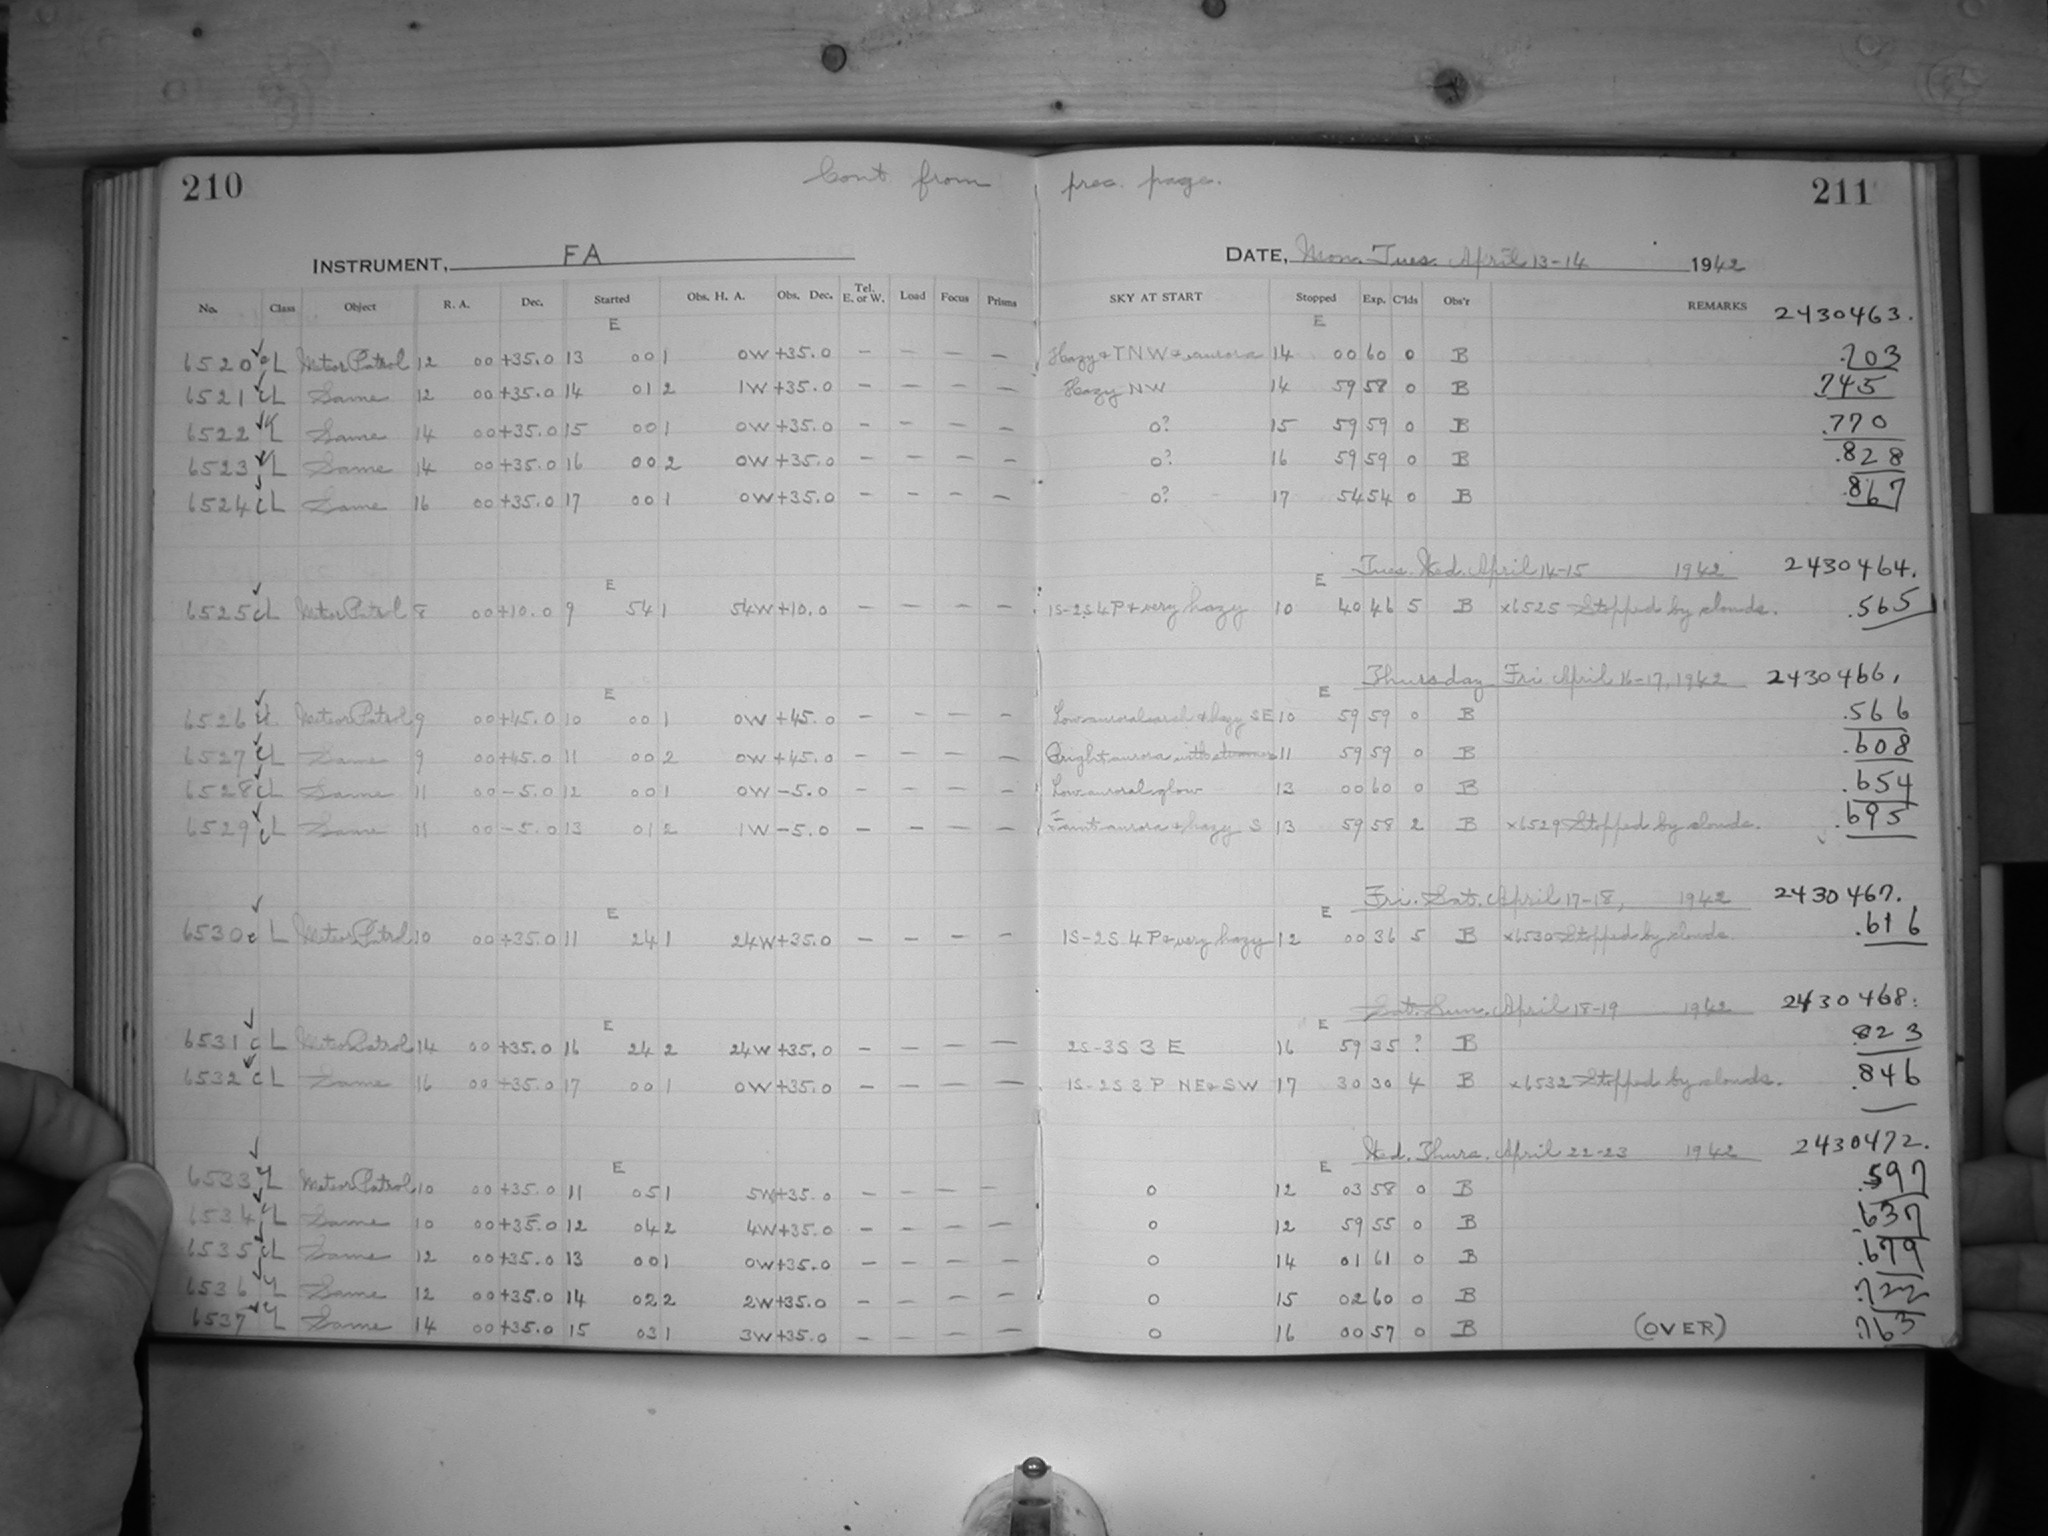 210 Cont. from prec. page. 211
INSTRUMENT, FA DATE, Mon. Tues. April 13-14 1942
No. Class Object R. A. Dec. Started Obs. H. A. Obs. Dec. Tel. E. or W. Load Focus Prisms SKY AT START Stopped Exp. C'lds Obs'r REMARKS 2430463.
E E
6520 cL Meteor Patrol 12 00 +35.0 13 00 1 0W +35.0 - - - - Hazy + T NW + aurora 14 00 60 0 B .703
6521 cL Same 12 00 +35.0 14 01 2 1W +35.0 - - - - Hazy NW 14 59 58 0 B .745
6522 L Same 14 00 +35.0 15 00 1 0W +35.0 - - - - 0? 15 59 59 0 B .770
6523 L Same 14 00 +35.0 16 00 2 0W +35.0 - - - - 0? 16 59 59 0 B .828
6524 cL Same 16 00 +35.0 17 00 1 0W +35.0 - - - - 0? 17 54 54 0 B .867
E E Tues. Wed. April 14-15 1942 2430464.
6525 cL Meteor Patrol 8 00 +10.0 9 54 1 54W +10.0 - - - - 1S-2S 4P + very hazy 10 40 46 5 B x6525 Stopped by clouds. .565
E E Thursday Fri April 16-17, 1942 2430466.
6526 cL Meteor Patrol 9 00 +45.0 10 00 1 0W +45.0 - - - - Low auroral arch + hazy SE 10 59 59 0 B .566
6527 cL Same 9 00 +45.0 11 00 2 0W +45.0 - - - - Bright aurora with streamers 11 59 59 0 B .608
6528 cL Same 11 00 -5.0 12 00 1 0W -5.0 - - - - Low auroral glow 13 00 60 0 B .654
6529 cL Same 11 00 -5.0 13 01 2 1W -5.0 - - - - Faint aurora + hazy S 13 59 58 2 B x6529 Stopped by clouds. .695
E E Fri. Sat. April 17-18, 1942 2430467.
6530 cL Meteor Patrol 10 00 +35.0 11 24 1 24W +35.0 - - - - 1S-2S 4P + very hazy 12 00 36 5 B x6530 Stopped by clouds. .616
E E Sat. Sun. April 18-19 1942 2430468.
6531 cL Meteor Patrol 14 00 +35.0 16 24 2 24W +35.0 - - - - 2S-3S 3 E 16 59 35 ? B .823
6532 cL Same 16 00 +35.0 17 00 1 0W +35.0 - - - - 1S-2S 3 P NE + SW 17 30 30 4 B x6532 Stopped by clouds. .846
E E Wed. Thurs. April 22-23 1942 2430472.
6533 cL Meteor Patrol 10 00 +35.0 11 05 1 5W +35.0 - - - - 0 12 03 58 0 B .597
6534 cL Same 10 00 +35.0 12 04 2 4W +35.0 - - - - 0 12 59 55 0 B .637
6535 cL Same 12 00 +35.0 13 00 1 0W +35.0 - - - - 0 14 01 61 0 B .679
6536 cL Same 12 00 +35.0 14 02 2 2W +35.0 - - - - 0 15 02 60 0 B .722
6537 cL Same 14 00 +35.0 15 03 1 3W +35.0 - - - - 0 16 00 57 0 B (OVER) .763